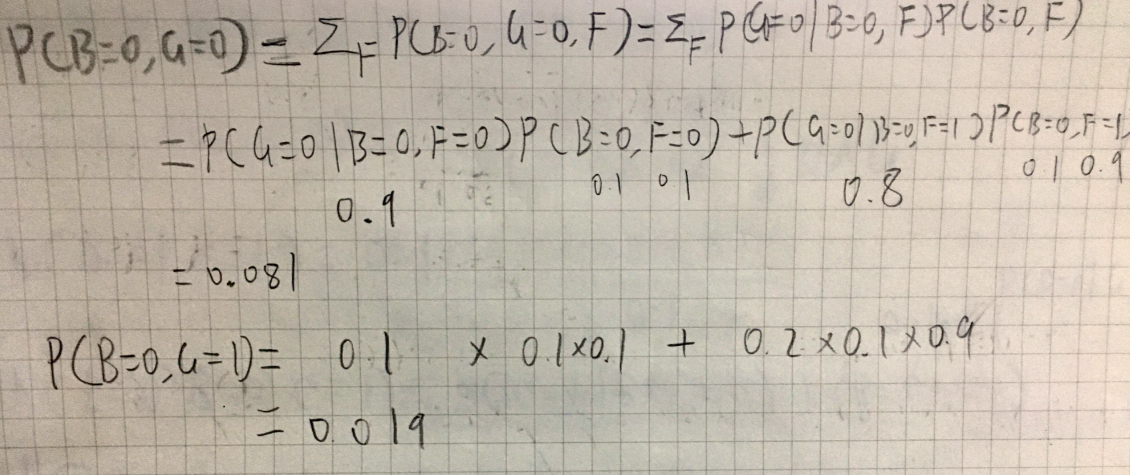 P(B=0, G=0) = Σ_F P(B=0, G=0, F) = Σ_F P(G=0 | B=0, F) P(B=0, F)
= P(G=0 | B=0, F=0) P(B=0, F=0) + P(G=0 | B=0, F=1) P(B=0, F=1
0.9 0.1 0.1 0.8 0.1 0.9
= 0.081
P(B=0, G=1) = 0.1 × 0.1×0.1 + 0.2×0.1×0.9
= 0.019